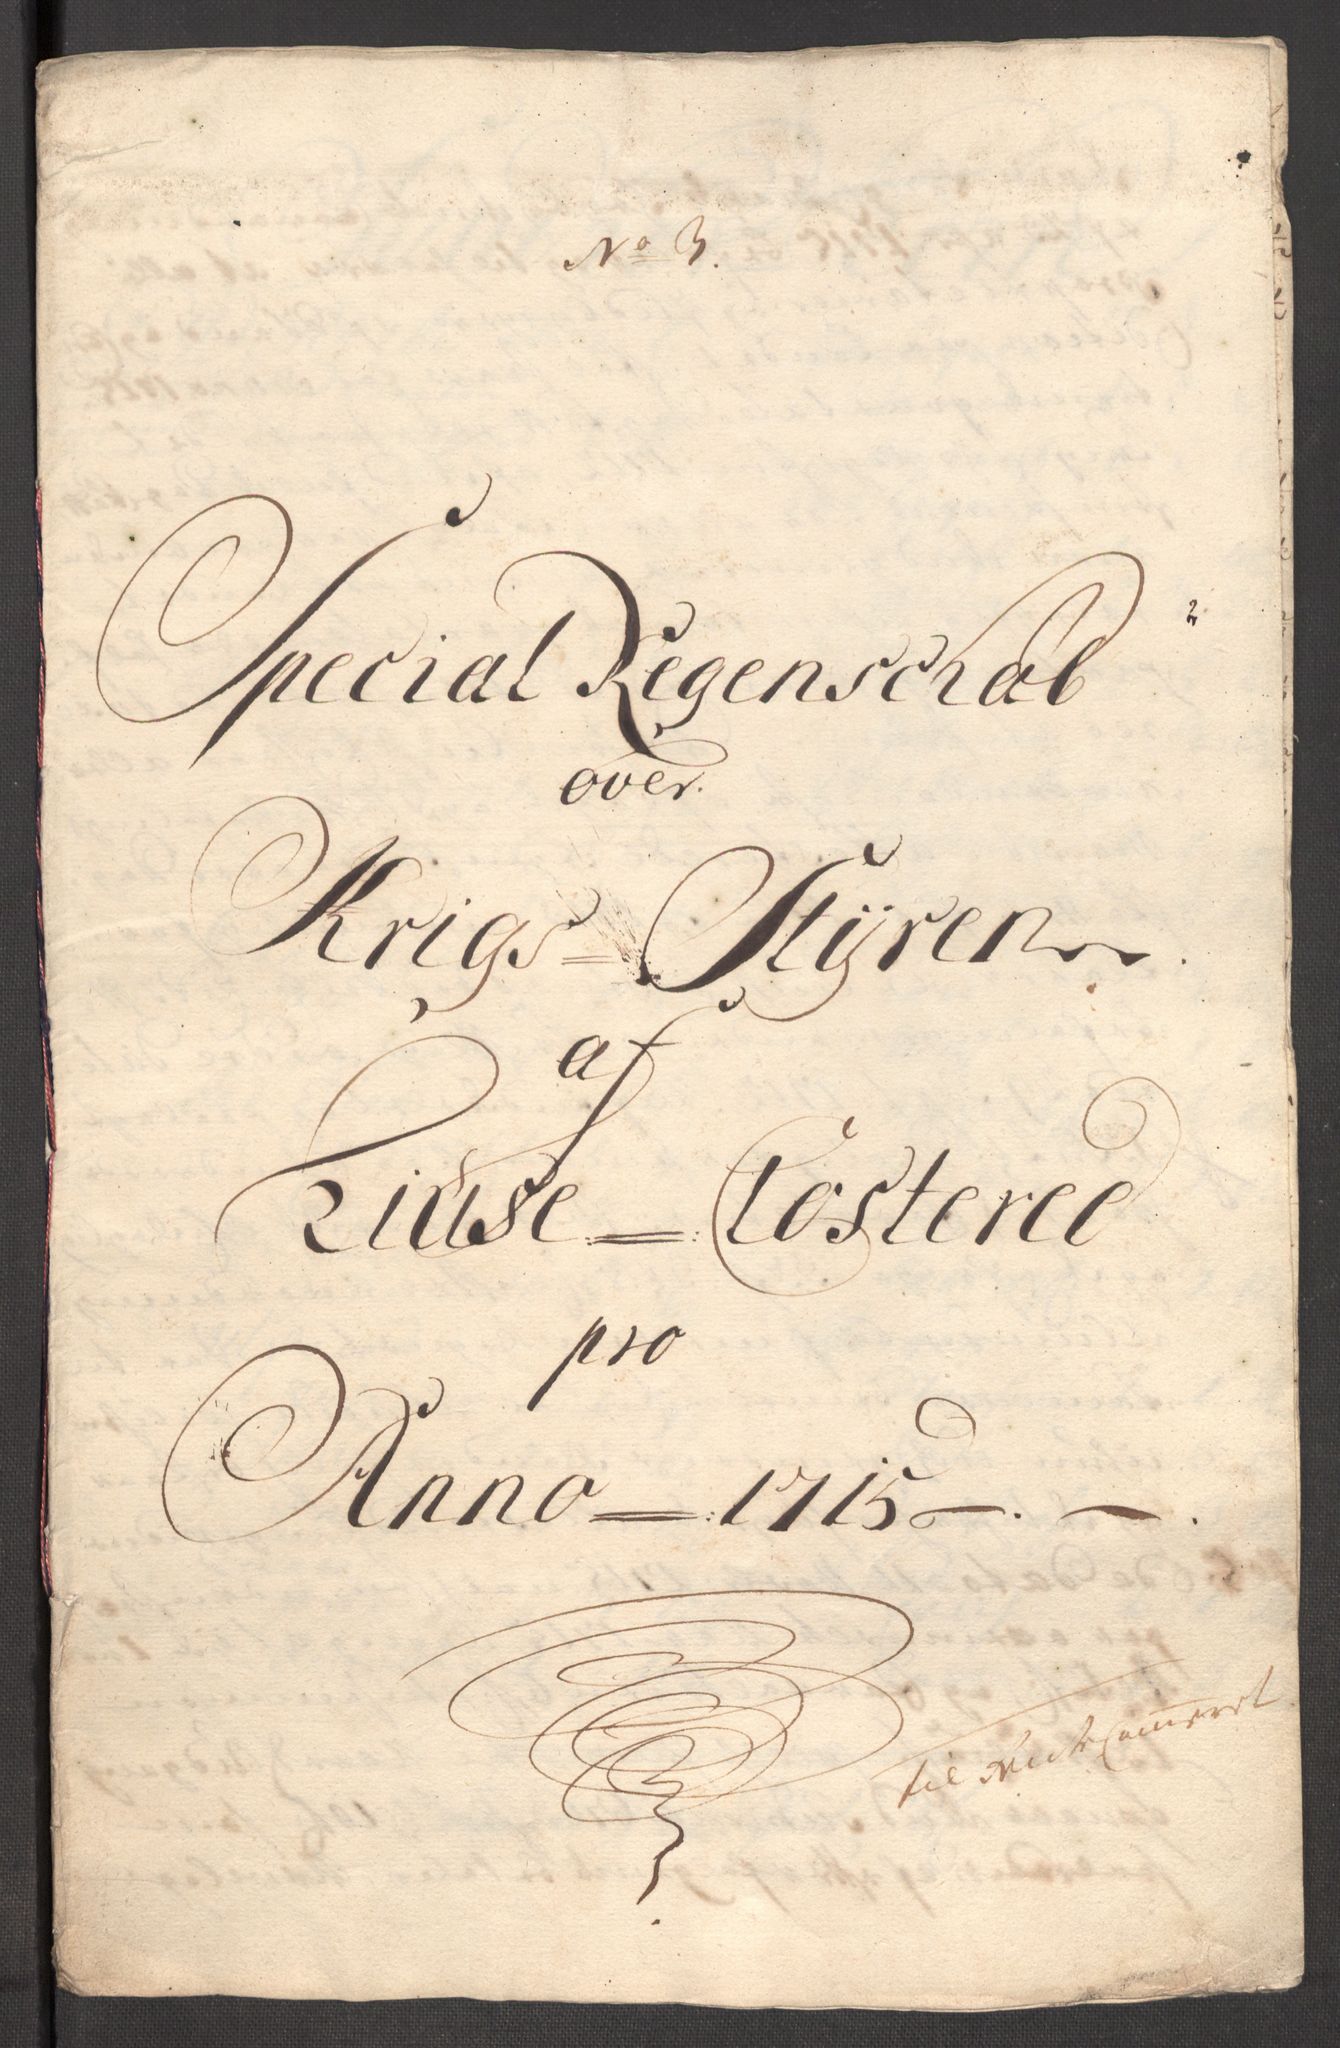 No 3.
Special Regenschab
over
Krigs=Stÿren
af
Liuse=Closteret
pro
Anno=1715
til Rente Cammeret